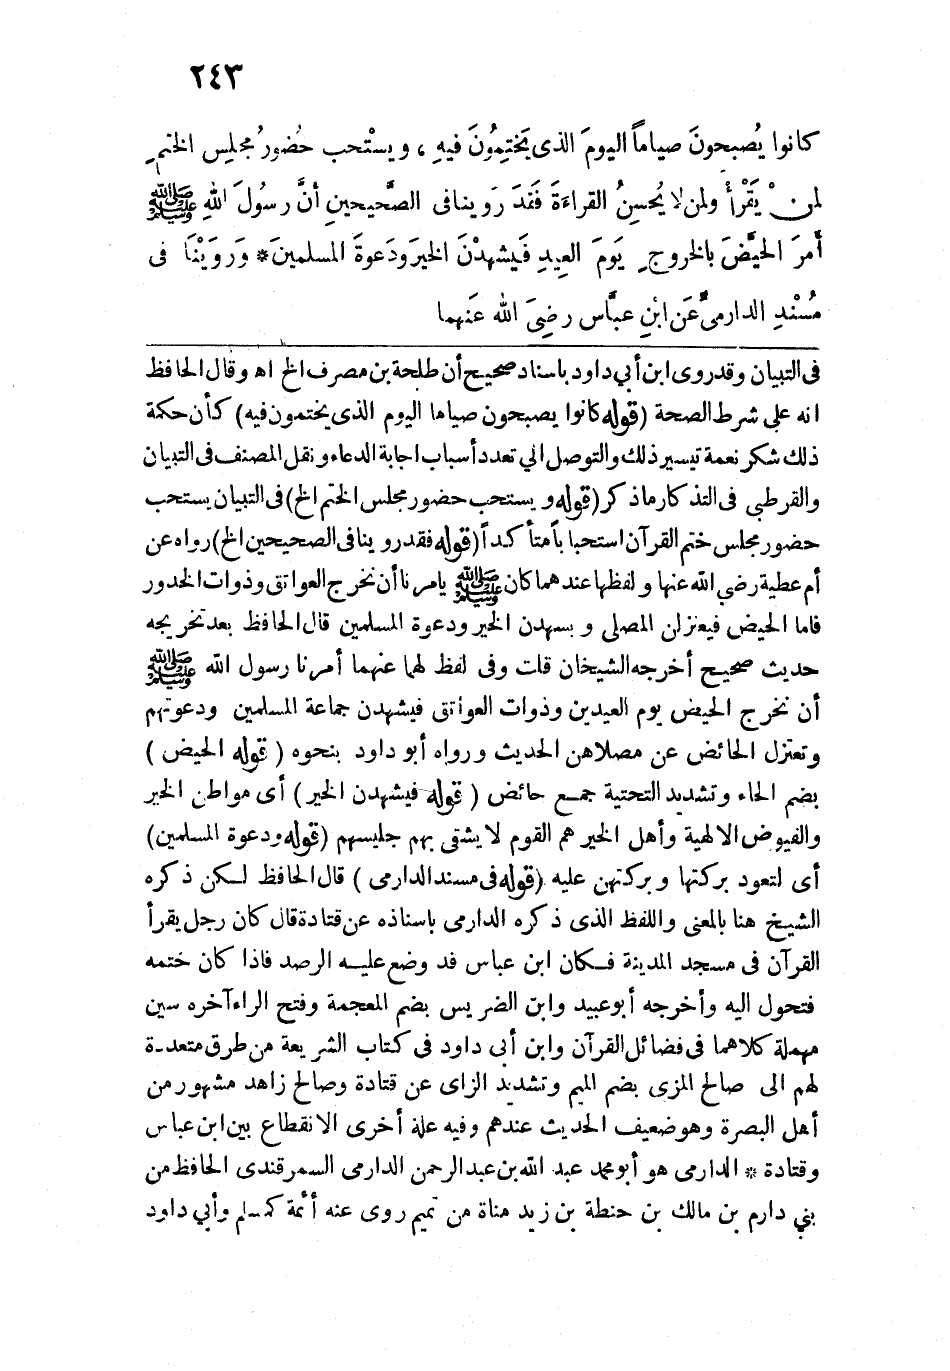 ٢٤٣
كانوا يُصبحونَ صياماً اليومَ الذى يَختِمُونَ فيهِ ، ويستْحب حُضورُ مجلِس الختمِ
لمنْ يَقْرأُ ولمن لا يُحسِنُ القراءَةَ فَقَدَ رَوينا فى الصَّحيحينِ أنَّ رسُولَ اللهِ ﷺ
أَمرَ الحيَّضَ بالخروجِ يَومَ العِيدِ فَيشهدْنَ الخيرَ ودَعوةَ المسلمينَ * وَرَوَيْنَا فى
مُسْنَدِ الدارمىِّ عَن ابْنِ عبَّاس رضِىَ اللهُ عَنهما
فى التبيان وقدروى ابن أبي داود باسناد صحيح أن طلحة بن مصرف الخ اه وقال الحافظ
انه على شرط الصحة (قوله كانوا يصبحون صياما اليوم الذى يختمون فيه) كأن حكمة
ذلك شكر نعمة تيسير ذلك والتوصل الي تعدد أسباب اجابة الدعاء ونقل المصنف فى التبيان
والقرطبي فى التذكار ما ذكر (قوله ويستحب حضور مجلس الختم الخ) فى التبيان يستحب
حضور مجلس ختم القرآن استحبا بأمتأ كداً (قوله فقدروينا فى الصحيحين الخ) رواه عن
أم عطية رضي الله عنها ولفظها عندهما كان ﷺ يامرنا أن نخرج العواتق وذوات الخدور
فاما الحيض فيعتزلن المصلى ويشهدن الخير ودعوة المسلمين قال الحافظ بعد تخريجه
حديث صحيح أخرجه الشيخان قلت وفى لفظ لهما عنهما أمرنا رسول الله ﷺ
أن نخرج الحيض يوم العيدين وذوات العواتق فيشهدن جماعة المسلمين ودعوتهم
وتعتزل الحائض عن مصلاهن الحديث ورواه أبو داود بنحوه (قوله الحيض)
بضم الحاء وتشديد التحتية جمع حائض (قوله فيشهدن الخير) أى مواطن الخير
والفيوض الالهية وأهل الخير هم القوم لا يشقى بهم جليسهم (قوله ودعوة المسلمين)
أى لتعود بركتها وبركتهن عليه (قوله فى مسند الدارمى) قال الحافظ لكن ذكره
الشيخ هنا بالمعنى واللفظ الذى ذكره الدارمى باسناذه عن قتادة قال كان رجل يقرأ
القرآن فى مسجد المدينة فكان ابن عباس قد وضع عليه الرصد فاذا كان ختمه
فتحول اليه وأخرجه أبو عبيد وابن الضريس بضم المعجمة وفتح الراء آخره سين
مهملة كلاهما فى فضائل القرآن وابن أبى داود فى كتاب الشريعة من طرق متعددة
لهم الى صالح المزى بضم الميم وتشديد الزاى عن قتادة وصالح زاهد مشهور من
أهل البصرة وهو ضعيف الحديث عندهم وفيه علة أخرى الانقطاع بين ابن عباس
وقتادة * الدارمى هو أبو محمد عبد الله بن عبد الرحمن الدارمى السمرقندى الحافظ من
بني دارم بن مالك بن حنطة بن زيد مناة من تميم روى عنه أئمة كمسلم وأبي داود